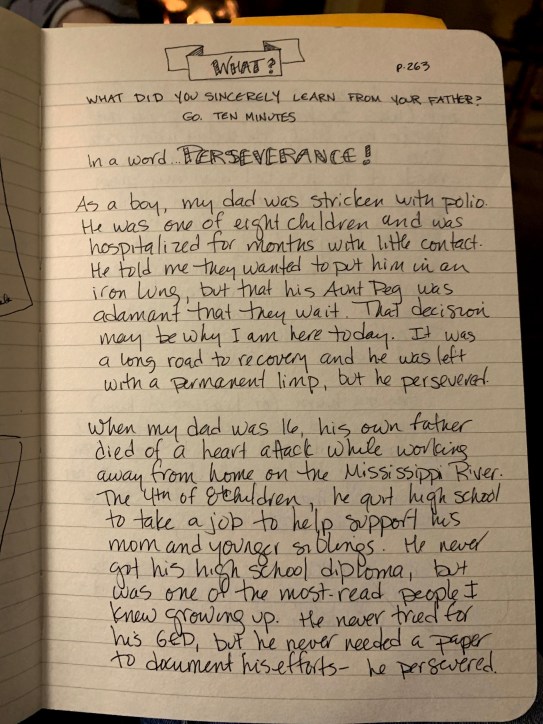 WHAT?
p.263
WHAT DID YOU SINCERELY LEARN FROM YOUR FATHER?
GO. TEN MINUTES
In a word... PERSEVERANCE!
As a boy, my dad was stricken with polio.
He was one of eight children and was
hospitalized for months with little contact.
He told me they wanted to put him in an
iron lung, but that his Aunt Peg was
adamant that they wait. That decision
may be why I am here today. It was
a long road to recovery and he was left
with a permanent limp, but he persevered.
When my dad was 16, his own father
died of a heart attack while working
away from home on the Mississippi River.
The 4th of 8 children, he quit high school
to take a job to help support his
mom and younger siblings. He never
got his high school diploma, but
was one of the most-read people I
knew growing up. He never tried for
his GED, but he never needed a paper
to document his efforts - he persevered.